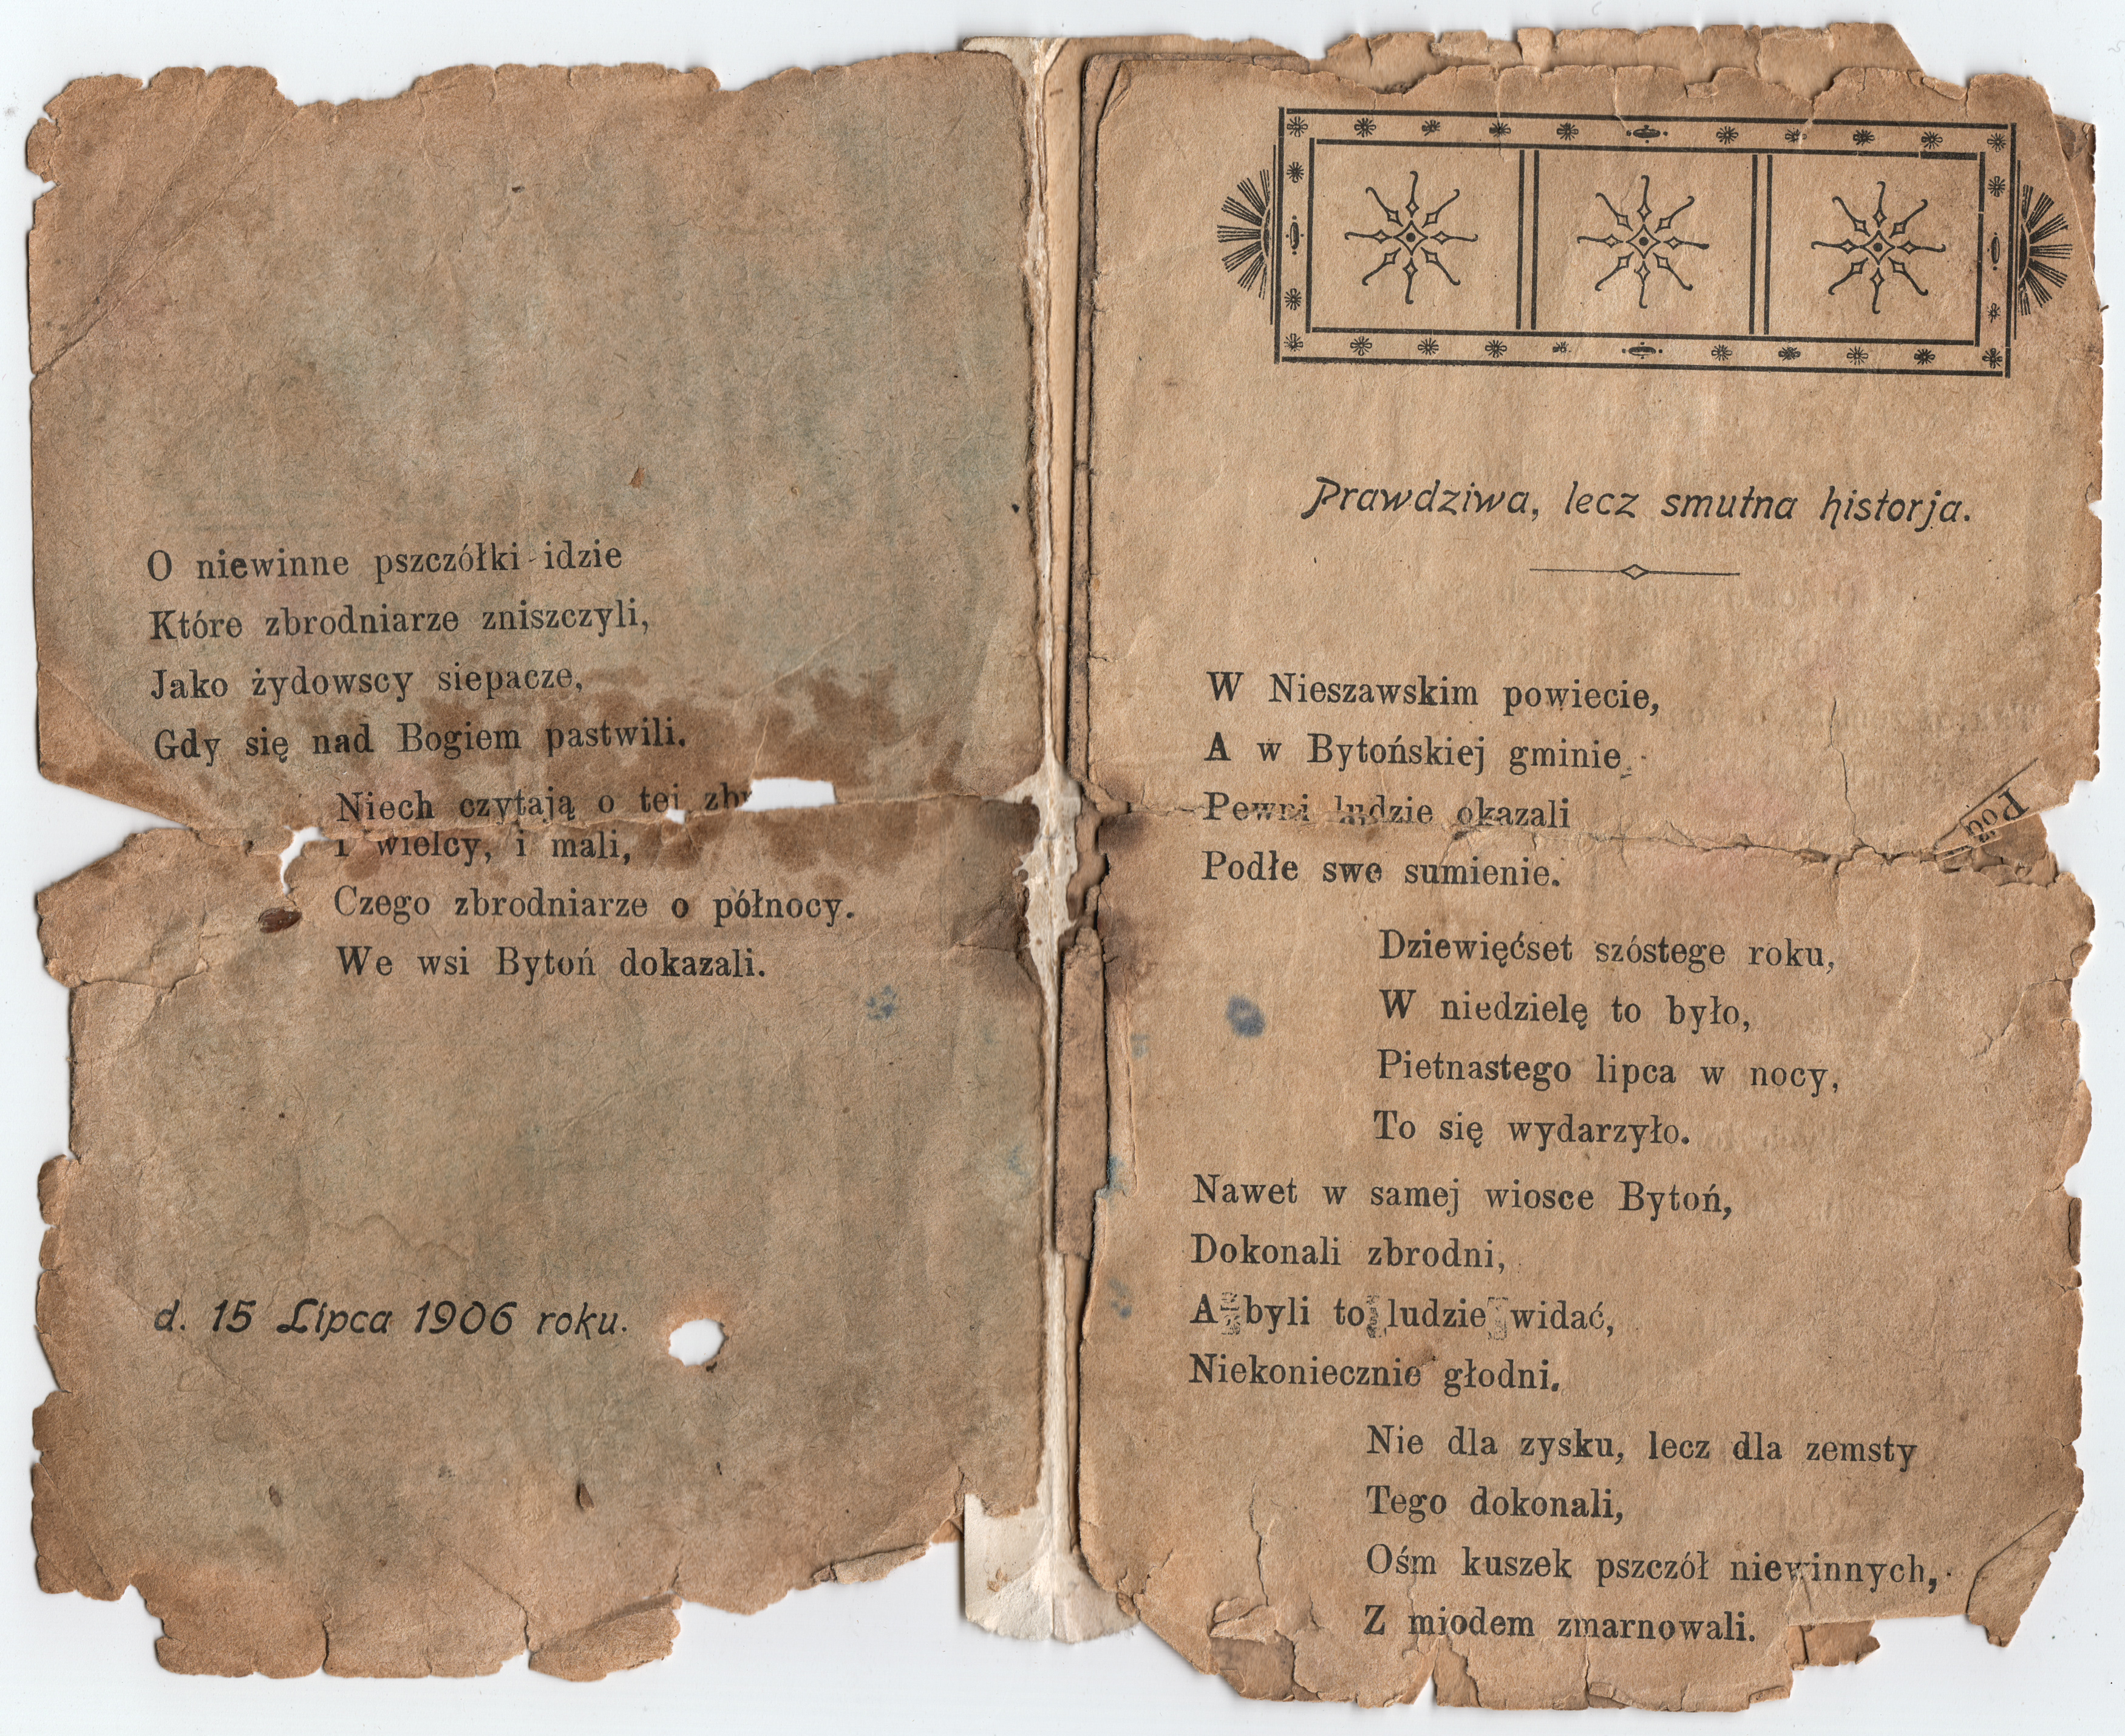 O niewinne pszczółki idzie
Które zbrodniarze zniszczyli,
Jako żydowscy siepacze,
Gdy się nad Bogiem pastwili.
Niech czytają o tej
i wielcy, i mali,
Czego zbrodniarze o północy.
We wsi Bytoń dokazali.
d. 15 Lipca 1906 roku.
Prawdziwa, lecz smutna historja.
W Nieszawskim powiecie,
A w Bytońskiej gminie
Pewni ludzie okazali
Podłe swe sumienie.
Dziewięćset szóstege roku,
W niedzielę to było,
Pietnastego lipca w nocy,
To się wydarzyło.
Nawet w samej wiosce Bytoń,
Dokonali zbrodni,
A byli to ludzie widać,
Niekoniecznie głodni.
Nie dla zysku, lecz dla zemsty
Tego dokonali,
Ośm kuszek pszczół niewinnych,
Z miodem zmarnowali.